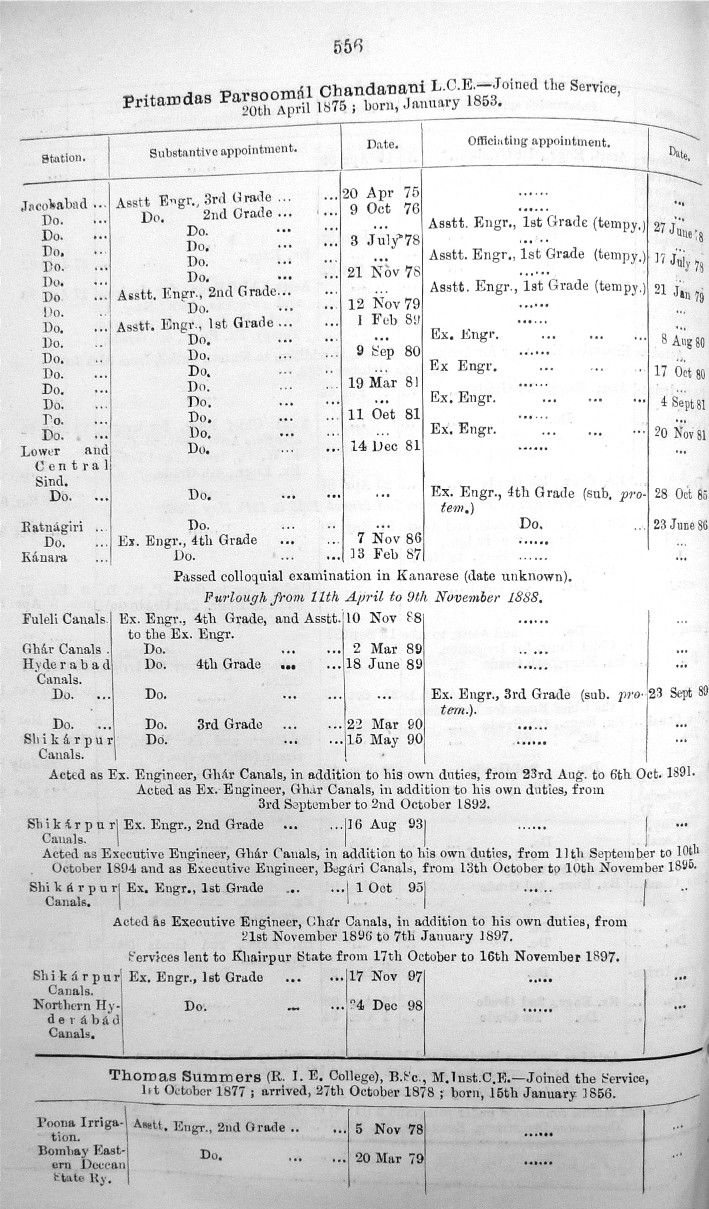 556
Pritamdas Parsoomál Chandanani L.C.E.—Joined the Service,
20th April 1875 ; born, January 1853.
Station. Substantive appointment. Date. Officiating appointment. Date.
Jacobabad ... Asstt Engr., 3rd Grade ... ... 20 Apr 75 ...... ...
Do. ... Do. 2nd Grade ... ... 9 Oct 76 ...... ...
Do. ... Do. ... ... ... Asstt. Engr., 1st Grade (tempy.) 27 June 78
Do. ... Do. ... ... 3 July 78 ...... ...
Do. ... Do. ... ... ... Asstt. Engr., 1st Grade (tempy.) 17 July 78
Do. ... Do. ... ... 21 Nov 78 ...... ...
Do ... Asstt. Engr., 2nd Grade... ... ... Asstt. Engr., 1st Grade (tempy.) 21 Jan 79
Do. ... Do. ... ... 12 Nov 79 ...... ...
Do. ... Asstt. Engr., 1st Grade ... ... 1 Feb 80 ...... ...
Do. ... Do. ... ... ... Ex. Engr. ... ... ... 8 Aug 80
Do. ... Do. ... ... 9 Sep 80 ...... ...
Do. ... Do. ... ... ... Ex Engr. ... ... ... 17 Oct 80
Do. ... Do. ... ... 19 Mar 81 ...... ...
Do. ... Do. ... ... ... Ex. Engr. ... ... ... 4 Sept 81
Do. ... Do. ... ... 11 Oct 81 ...... ...
Do. ... Do. ... ... ... Ex. Engr. ... ... ... 20 Nov 81
Lower and Do. ... ... 14 Dec 81 ...... ...
Central
Sind.
Do. ... Do. ... ... ... Ex. Engr., 4th Grade (sub. pro- 28 Oct 85
tem.)
Ratnágiri ... Do. ... ... ... Do. ... 23 June 86
Do. ... Ex. Engr., 4th Grade ... ... 7 Nov 86 ...... ...
Kánara ... Do. ... ... 13 Feb 87 ...... ...
Passed colloquial examination in Kanarese (date unknown).
Furlough from 11th April to 9th November 1888.
Fuleli Canals. Ex. Engr., 4th Grade, and Asstt. 10 Nov 88 ...... ...
to the Ex. Engr.
Ghár Canals . Do. ... ... 2 Mar 89 ...... ...
Hyderabad Do. 4th Grade ... ... 18 June 89 ...... ...
Canals.
Do. ... Do. ... ... ... Ex. Engr., 3rd Grade (sub. pro- 23 Sept 89
tem.).
Do. ... Do. 3rd Grade ... ... 22 Mar 90 ...... ...
Shikárpur Do. ... ... 15 May 90 ...... ...
Canals.
Acted as Ex. Engineer, Ghár Canals, in addition to his own duties, from 23rd Aug. to 6th Oct. 1891.
Acted as Ex. Engineer, Ghár Canals, in addition to his own duties, from
3rd September to 2nd October 1892.
Shikárpur Ex. Engr., 2nd Grade ... ... 16 Aug 93 ...... ...
Canals.
Acted as Executive Engineer, Ghár Canals, in addition to his own duties, from 11th September to 10th
October 1894 and as Executive Engineer, Begári Canals, from 13th October to 10th November 1895.
Shikárpur Ex. Engr., 1st Grade ... ... 1 Oct 95 ...... ...
Canals.
Acted as Executive Engineer, Ghár Canals, in addition to his own duties, from
21st November 1896 to 7th January 1897.
Services lent to Khairpur State from 17th October to 16th November 1897.
Shikárpur Ex. Engr., 1st Grade ... ... 17 Nov 97 ...... ...
Canals.
Northern Hy- Do. ... ... 4 Dec 98 ...... ...
derábád
Canals.
Thomas Summers (R. I. E. College), B.Sc., M.Inst.C.E.—Joined the Service,
1st October 1877 ; arrived, 27th October 1878 ; born, 15th January 1856.
Poona Irriga- Asstt. Engr., 2nd Grade .. ... 5 Nov 78 ...... ...
tion.
Bombay East- Do. ... ... 20 Mar 79 ...... ...
ern Deccan
State Ry.